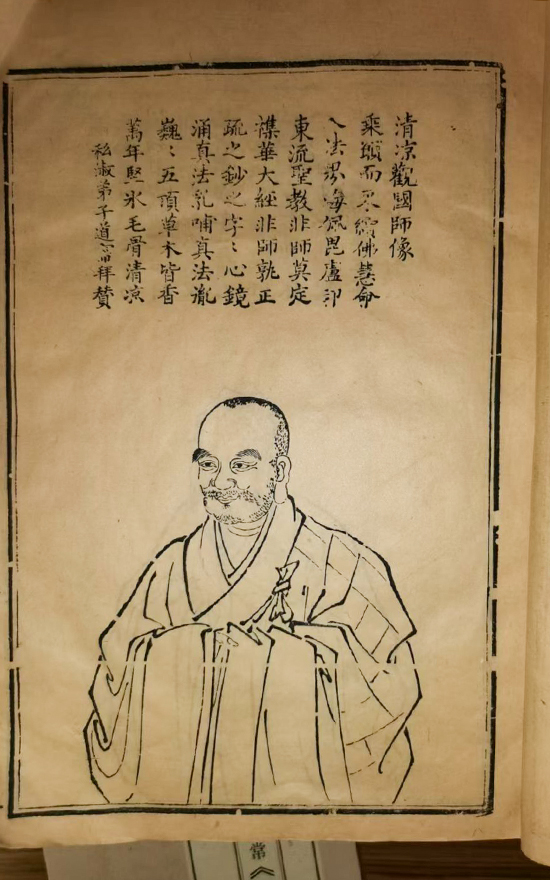 清凉觀國師像
乘願而來續佛慧命
入法界海佩毘盧印
東流聖教非師莫定
襍華大經非師孰正
疏之鈔之字〻心鏡
涌真法乳哺真法胤
巍〻五頂草木皆香
萬年堅氷毛骨清凉
私淑弟子道霈拜贊
常《